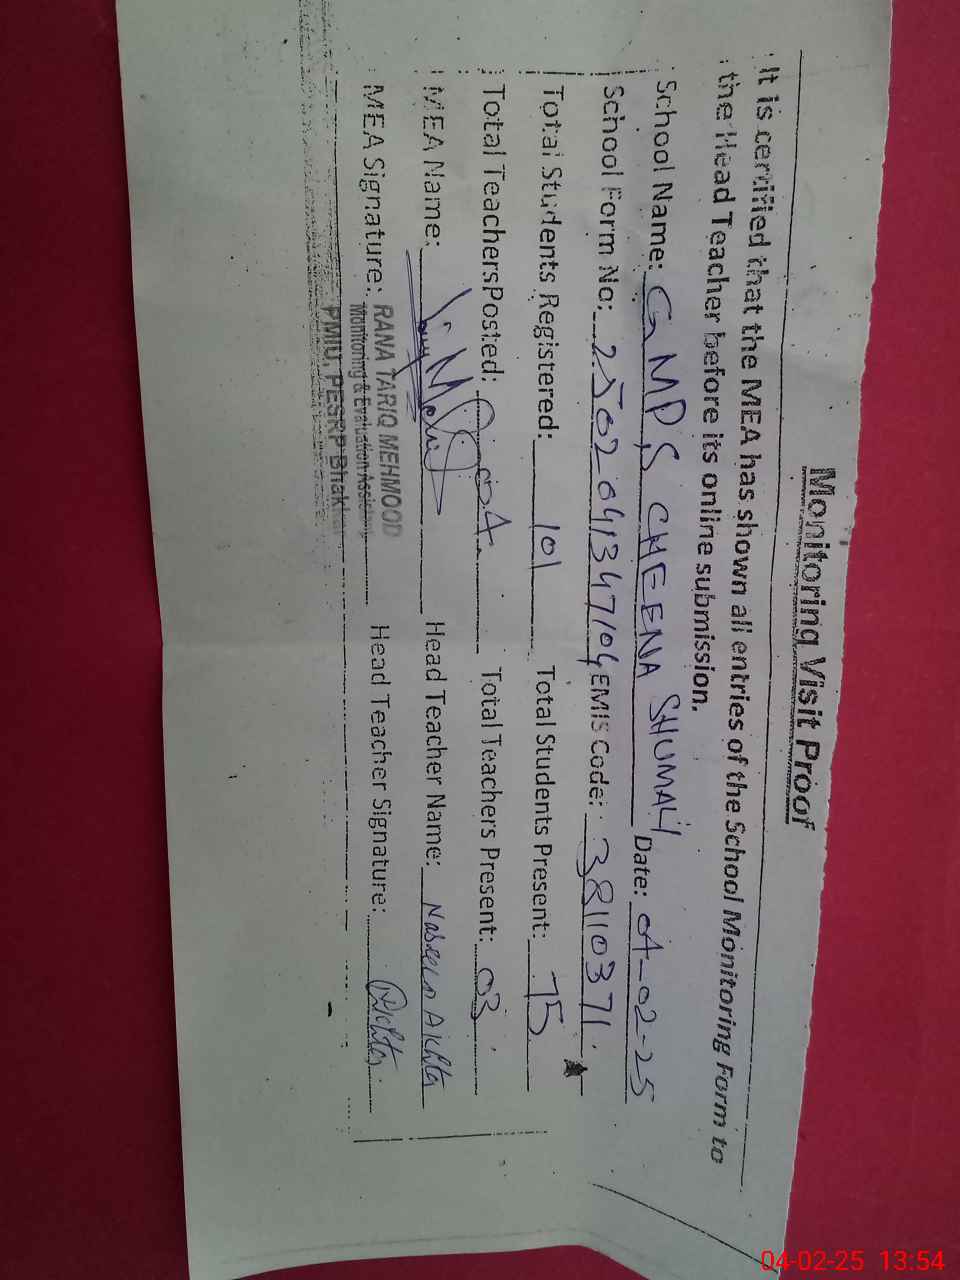 Monitoring Visit Proof
It is certified that the MEA has shown all entries of the School Monitoring Form to
the Head Teacher before its online submission.
School Name: GMPS CHEENA SHUMALI Date: 04-02-25
School Form No: 2502041347104 EMIS Code: 38110371
Total Students Registered: 101 Total Students Present: 75
Total TeachersPosted: 04 Total Teachers Present: 03
MEA Name: Head Teacher Name: Akhter
MEA Signature: Head Teacher Signature: Akhter
RANA TARIQ MEHMOOD
Monitoring & Evaluation Assistant
PMIU, PESRP Bhakkar
04-02-25 13:54